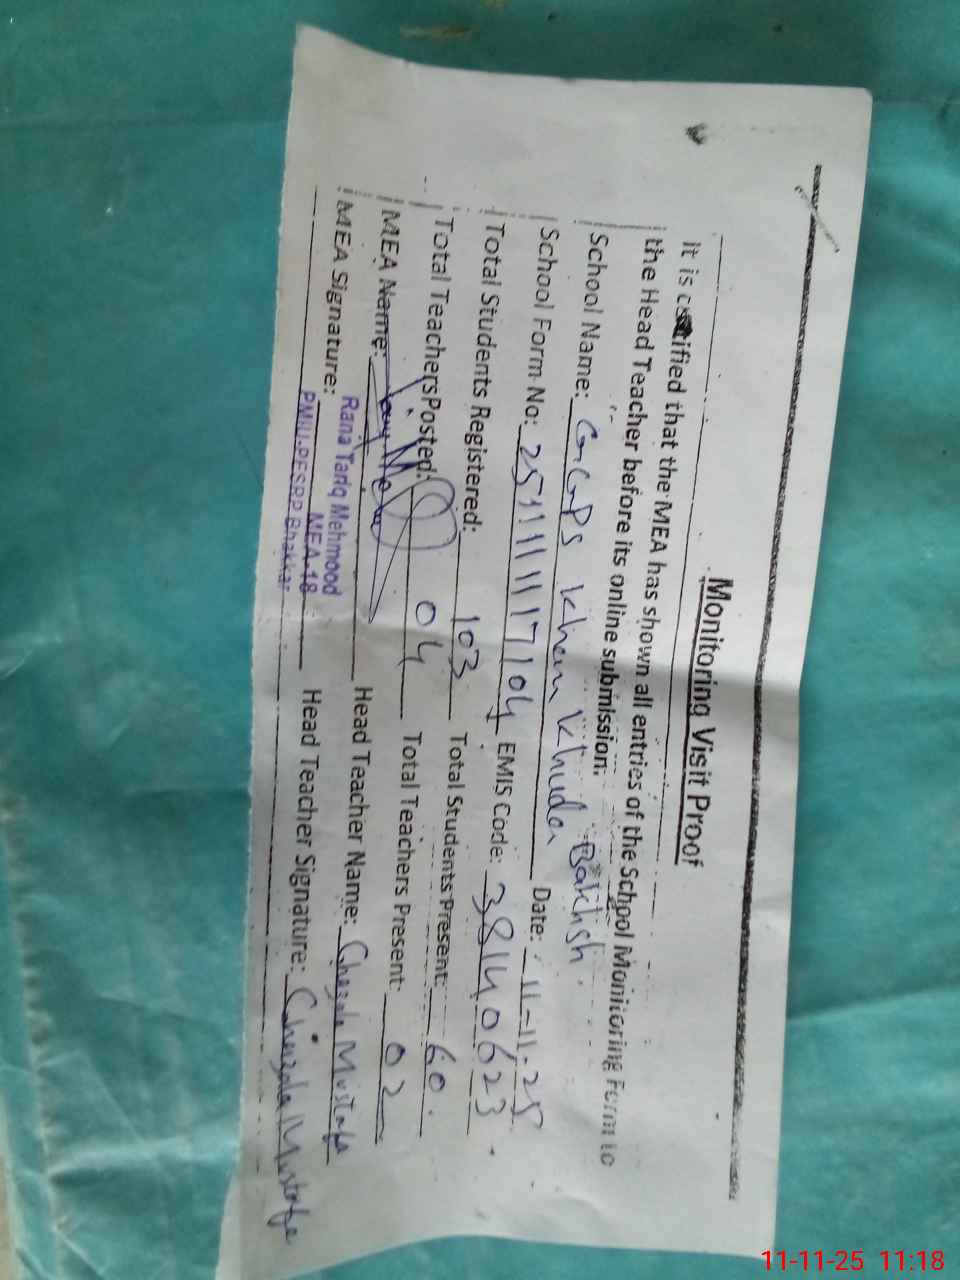 Monitoring Visit Proof
It is certified that the MEA has shown all entries of the School Monitoring Form to
the Head Teacher before its online submission.
School Name: GGPS Khem Khuda Bakhsh.
School Form No: 251111117104 Date: 11-11-25
Total Students Registered: 103 EMIS Code: 38140623
Total Teachers Posted: 04 Total Students Present: 60.
MEA Name: Total Teachers Present: 02
MEA Signature: Head Teacher Name: Ghazala Mustafa
Rana Tariq Mehmood
MEA-18
PMIU-PESRP Bhakkar
Head Teacher Signature: Ghazala Mustafa
11-11-25 11:18